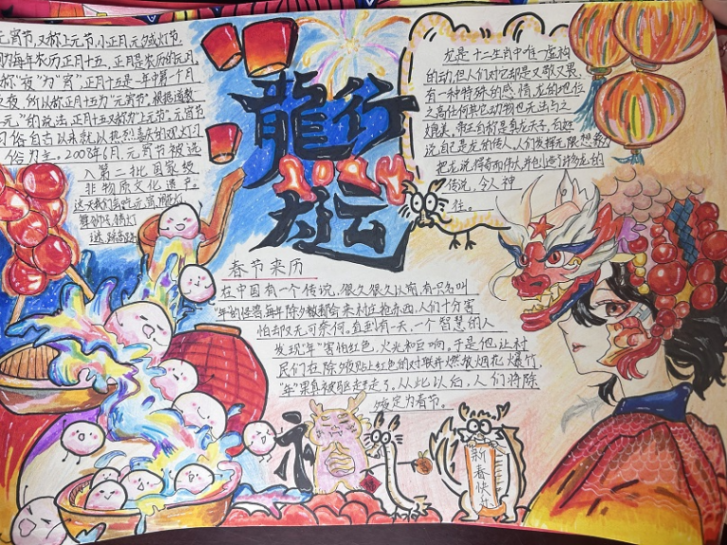 元宵节,又称上元节,小正月,元夕或灯节.
为每年农历正月十五,正月是农历的元月,
称"夜"为"宵",正月十五是一年中第一个月
之夜 所以称正月十五为"元宵节".根据道教
元"的说法,正月十五又称为"上元节".元宵节
习俗自古以来就以热烈喜庆的观灯习
俗为主。2008年6月,元宵节被选
入第二批国家级
非物质文化遗产。
龍行
大运
龙是十二生肖中唯一虚构
的动物,但人们对它却是又敬又畏,
有一种特殊的感情,龙的地位
之高任何其它动物也无法与之
媲美,帝王自称是真龙天子,百姓
说自己是龙的传人,人们发挥无限想象力
把龙说得奇而伟大并创造了许多龙的
传说,令人神
往。
春节来历
在中国有一个传说,很久很久以前,有只名叫
"年"的怪兽,每年除夕都会来村庄抢东西,人们十分害
怕却又无可奈何,直到有一天,一个智慧的人
发现"年"害怕红色,火光和巨响,于是他让村
民们在除夕贴上红色的对联并燃放烟花爆竹
"年"果真被驱走走了,从此以后,人们将除
夕定为春节。
新春快